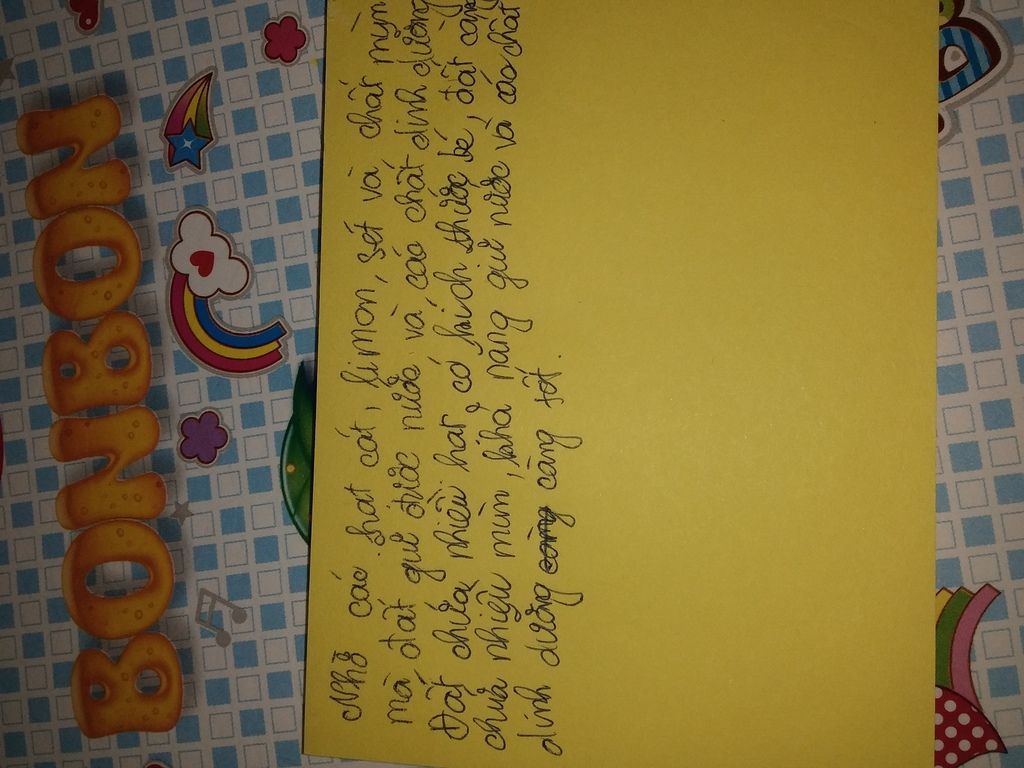 BONBON
Nhờ các hạt cát, limon, sét và chất mùn
mà đất giữ được nước và các chất dinh dưỡng
Đất chứa nhiều hạt có kích thước bé, đất càng
chứa nhiều mùn, khả năng giữ nước và các chất
dinh dưỡng càng tốt.
B